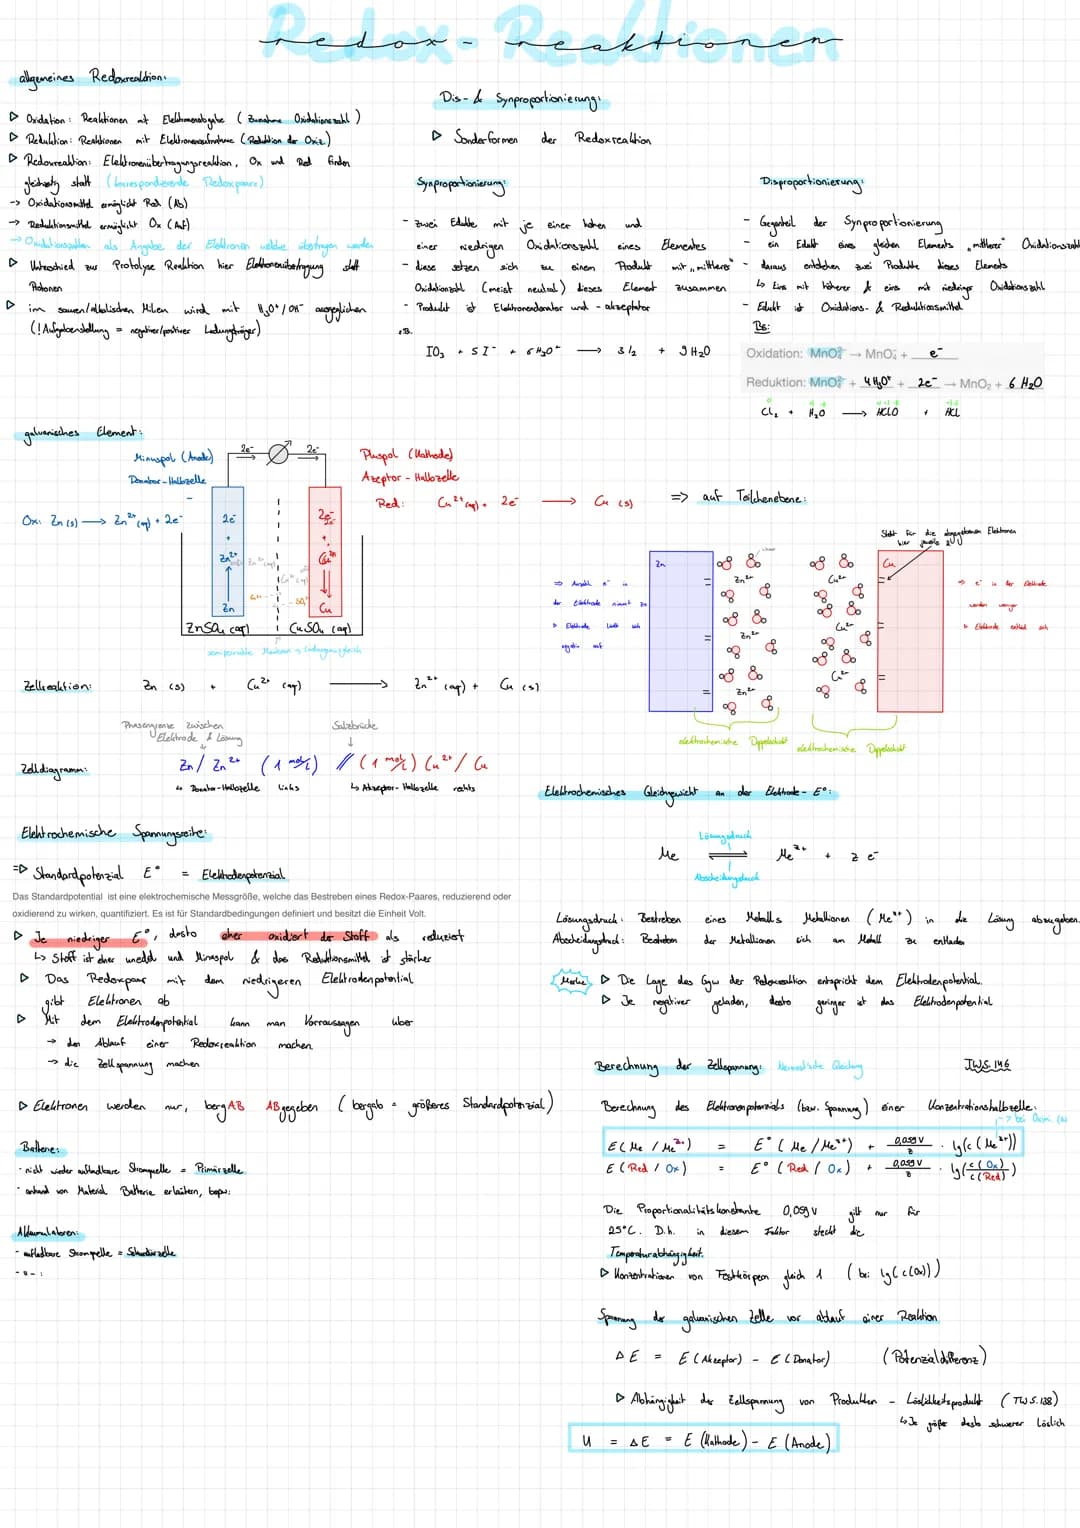 Redox-Reaktionen
allgemeines Redoxreaktion:
▷ Oxidation: Reaktionen mit Elektronenabgabe (Zunahme Oxidationszahl)
▷ Reduktion: Reaktionen mit Elektronenaufnahme (Reduktion der Oxiz.)
▷ Redoxreaktion: Elektronenübertragungsreaktion, Ox und Red finden
gleichzeitig statt (korrespondierende Redoxpaare)
-> Oxidationsmittel ermöglicht Red (Ab)
-> Reduktionsmittel ermöglicht Ox (Auf)
-> Oxidationszahlen als Angabe der Elektronen welche übertragen werden
▷ Unterschied zur Protolyse Reaktion hier Elektronenübertragung statt
Protonen
▷ im sauren/alkalischen Milieu wird mit H₃O⁺/OH⁻ ausgeglichen
(! Aufgabenstellung = negativer/positiver Ladungsträger)
Dis- & Synproportionierung:
▷ Sonderformen der Redoxreaktion
Synproportionierung:
- zwei Edukte mit je einer hohen und
einer niedrigen Oxidationszahl eines Elementes
- diese setzen sich zu einem Produkt mit „mittlerer"
Oxidationszahl (meist neutral) dieses Element zusammen
- Produkt ist Elektronendonator und -akzeptator
z.B.
IO₃ + 5 I⁻ + 6 H₃O⁺ → 3 I₂ + 9 H₂O
Disproportionierung:
- Gegenteil der Synproportionierung
- ein Edukt eines gleichen Elements „mittlerer" Oxidationszahl
- daraus entstehen zwei Produkte dieses Elements
↳ Eins mit höherer & eins mit niedriger Oxidationszahl
- Edukt ist Oxidations- & Reduktionsmittel
Bs:
Oxidation: MnO₄²⁻ → MnO₄⁻ + e⁻
Reduktion: MnO₄²⁻ + 4 H₃O⁺ + 2e⁻ → MnO₂ + 6 H₂O
Cl₂ + H₂O → HClO + HCl
galvanisches Element:
Minuspol (Anode)
Donator-Halbzelle
-
Ox: Zn (s) → Zn²⁺ (aq) + 2e⁻
2e⁻ 2e⁻
Pluspol (Kathode)
Akzeptor-Halbzelle
Red: Cu²⁺ (aq) + 2e⁻ → Cu (s)
2e⁻
+
Zn²⁺
Zn
2e⁻
+
Cu²⁺
Cu
ZnSO₄ (aq) CuSO₄ (aq)
semipermeable Membran → Ladungsausgleich
=> auf Teilchenebene:
Steht für die abgegebenen Elektronen
hier jeweils 2
Zn
Zn²⁺
Zn²⁺
Zn²⁺
Cu²⁺
Cu²⁺
Cu²⁺
Cu
=> Anzahl e⁻ in
der Elektrode nimmt zu
▷ Elektrode lädt sich
negativ auf
=> e⁻ in der Elektrode
werden weniger
▷ Elektrode entläd sich
elektrochemische Doppelschicht
elektrochemische Doppelschicht
Zellreaktion: Zn (s) + Cu²⁺ (aq) → Zn²⁺ (aq) + Cu (s)
Phasengrenze zwischen
Elektrode & Lösung
Salzbrücke
Zelldiagramm: Zn / Zn²⁺ (1 mol/L) // (1 mol/L) Cu²⁺ / Cu
↳ Donator-Halbzelle links
↳ Akzeptor-Halbzelle rechts
Elektrochemische Spannungsreihe:
=▷ Standardpotenzial E° = Elektrodenpotenzial
Das Standardpotential ist eine elektrochemische Messgröße, welche das Bestreben eines Redox-Paares, reduzierend oder
oxidierend zu wirken, quantifiziert. Es ist für Standardbedingungen definiert und besitzt die Einheit Volt.
▷ Je niedriger E°, desto eher oxidiert der Stoff als reduziert
↳ Stoff ist eher unedel und Minuspol & das Reduktionsmittel ist stärker
▷ Das Redoxpaar mit dem niedrigeren Elektrodenpotential
gibt Elektronen ab
▷ Mit dem Elektrodenpotential kann man Vorraussagen über
→ den Ablauf einer Redoxreaktion machen
→ die Zellspannung machen
▷ Elektronen werden nur, bergAB ABgegeben (bergab = größeres Standardpotenzial)
Batterie:
- nicht wieder aufladbare Stromquelle = Primärzelle
- anhand von Material Batterie erläutern, bspw:
Akkumulatoren:
- aufladbare Stromquelle = Sekundärzelle
- " - :
Elektrochemisches Gleichgewicht an der Elektrode - E°:
Lösungsdruck
Me ⇌ Meᶻ⁺ + z e⁻
Abscheidungsdruck
Lösungsdruck: Bestreben eines Metalls Metallionen (Meᶻ⁺) in die Lösung abzugeben.
Abscheidungsdruck: Bestreben der Metallionen sich am Metall zu entladen
Merke ▷ Die Lage des Ggw der Redoxreaktion entspricht dem Elektrodenpotential.
▷ Je negativer geladen, desto geringer ist das Elektrodenpotential
Berechnung der Zellspannung: Nernst'sche Gleichung TWS. 146
Berechnung des Elektronenpotenzials (bzw. Spannung) einer Konzentrationshalbzelle:
E (Me / Meᶻ⁺) = E° (Me / Meᶻ⁺) + 0,059 V / z · lg(c (Meᶻ⁺))
E (Red / Ox) = E° (Red / Ox) + 0,059 V / z · lg(c (Ox) / c (Red))
Die Proportionalitätskonstante 0,059 V gilt nur für
25°C. D.h. in diesem Faktor steckt die
Temperaturabhängigkeit.
▷ Konzentrationen von Festkörpern gleich 1 (bei lg(c(Ox)))
Spannung der galvanischen Zelle vor ablauf einer Reaktion
ΔE = E (Akzeptor) - E (Donator) (Potenzialdifferenz)
▷ Abhängigkeit der Zellspannung von Produkten - Löslichkeitsprodukt (TWS. 138)
↳ Je größer desto schwerer Löslich
U = ΔE = E (Kathode) - E (Anode)